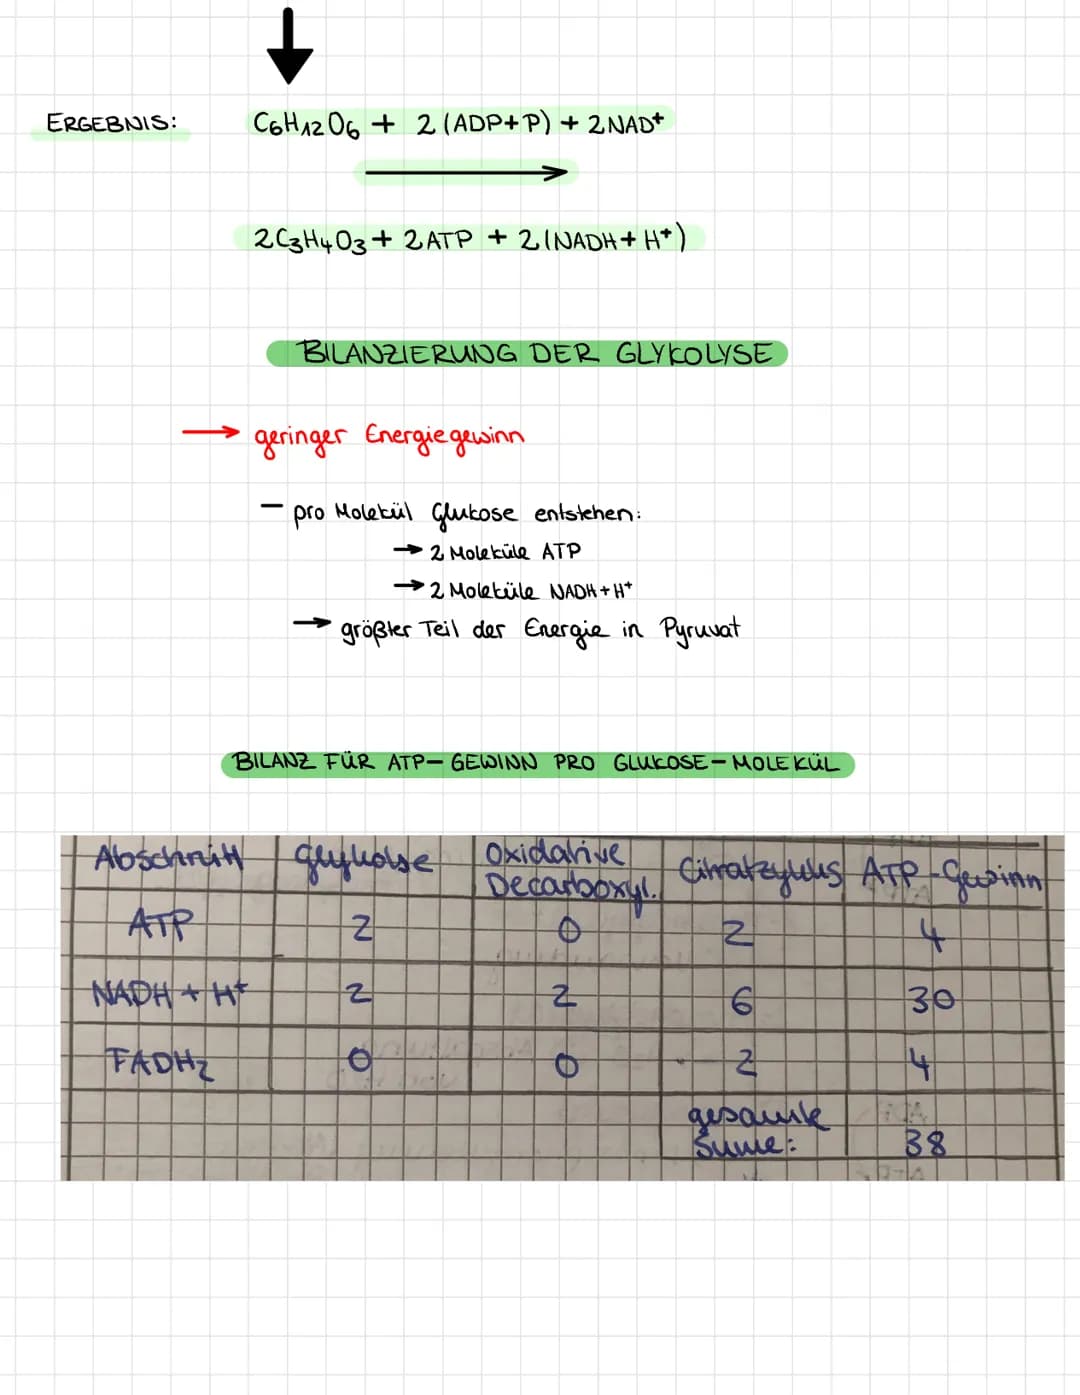 ERGEBNIS: C6H12O6 + 2 (ADP+P) + 2NAD+
2C3H4O3 + 2 ATP + 2 (NADH + H+)
BILANZIERUNG DER GLYKOLYSE
→ geringer Energiegewinn
– pro Molekül Glukose entstehen:
→ 2 Moleküle ATP
→ 2 Moleküle NADH + H+
→ größter Teil der Energie in Pyruvat
BILANZ FÜR ATP – GEWINN PRO GLUKOSE – MOLEKÜL
Abschnitt Glykolse Oxidative Decarboxyl. Citratzyklus ATP-Gewinn
ATP 2 0 2 4
NADH + H+ 2 2 6 30
FADH2 0 0 2 4
gesamte
Sume: 38